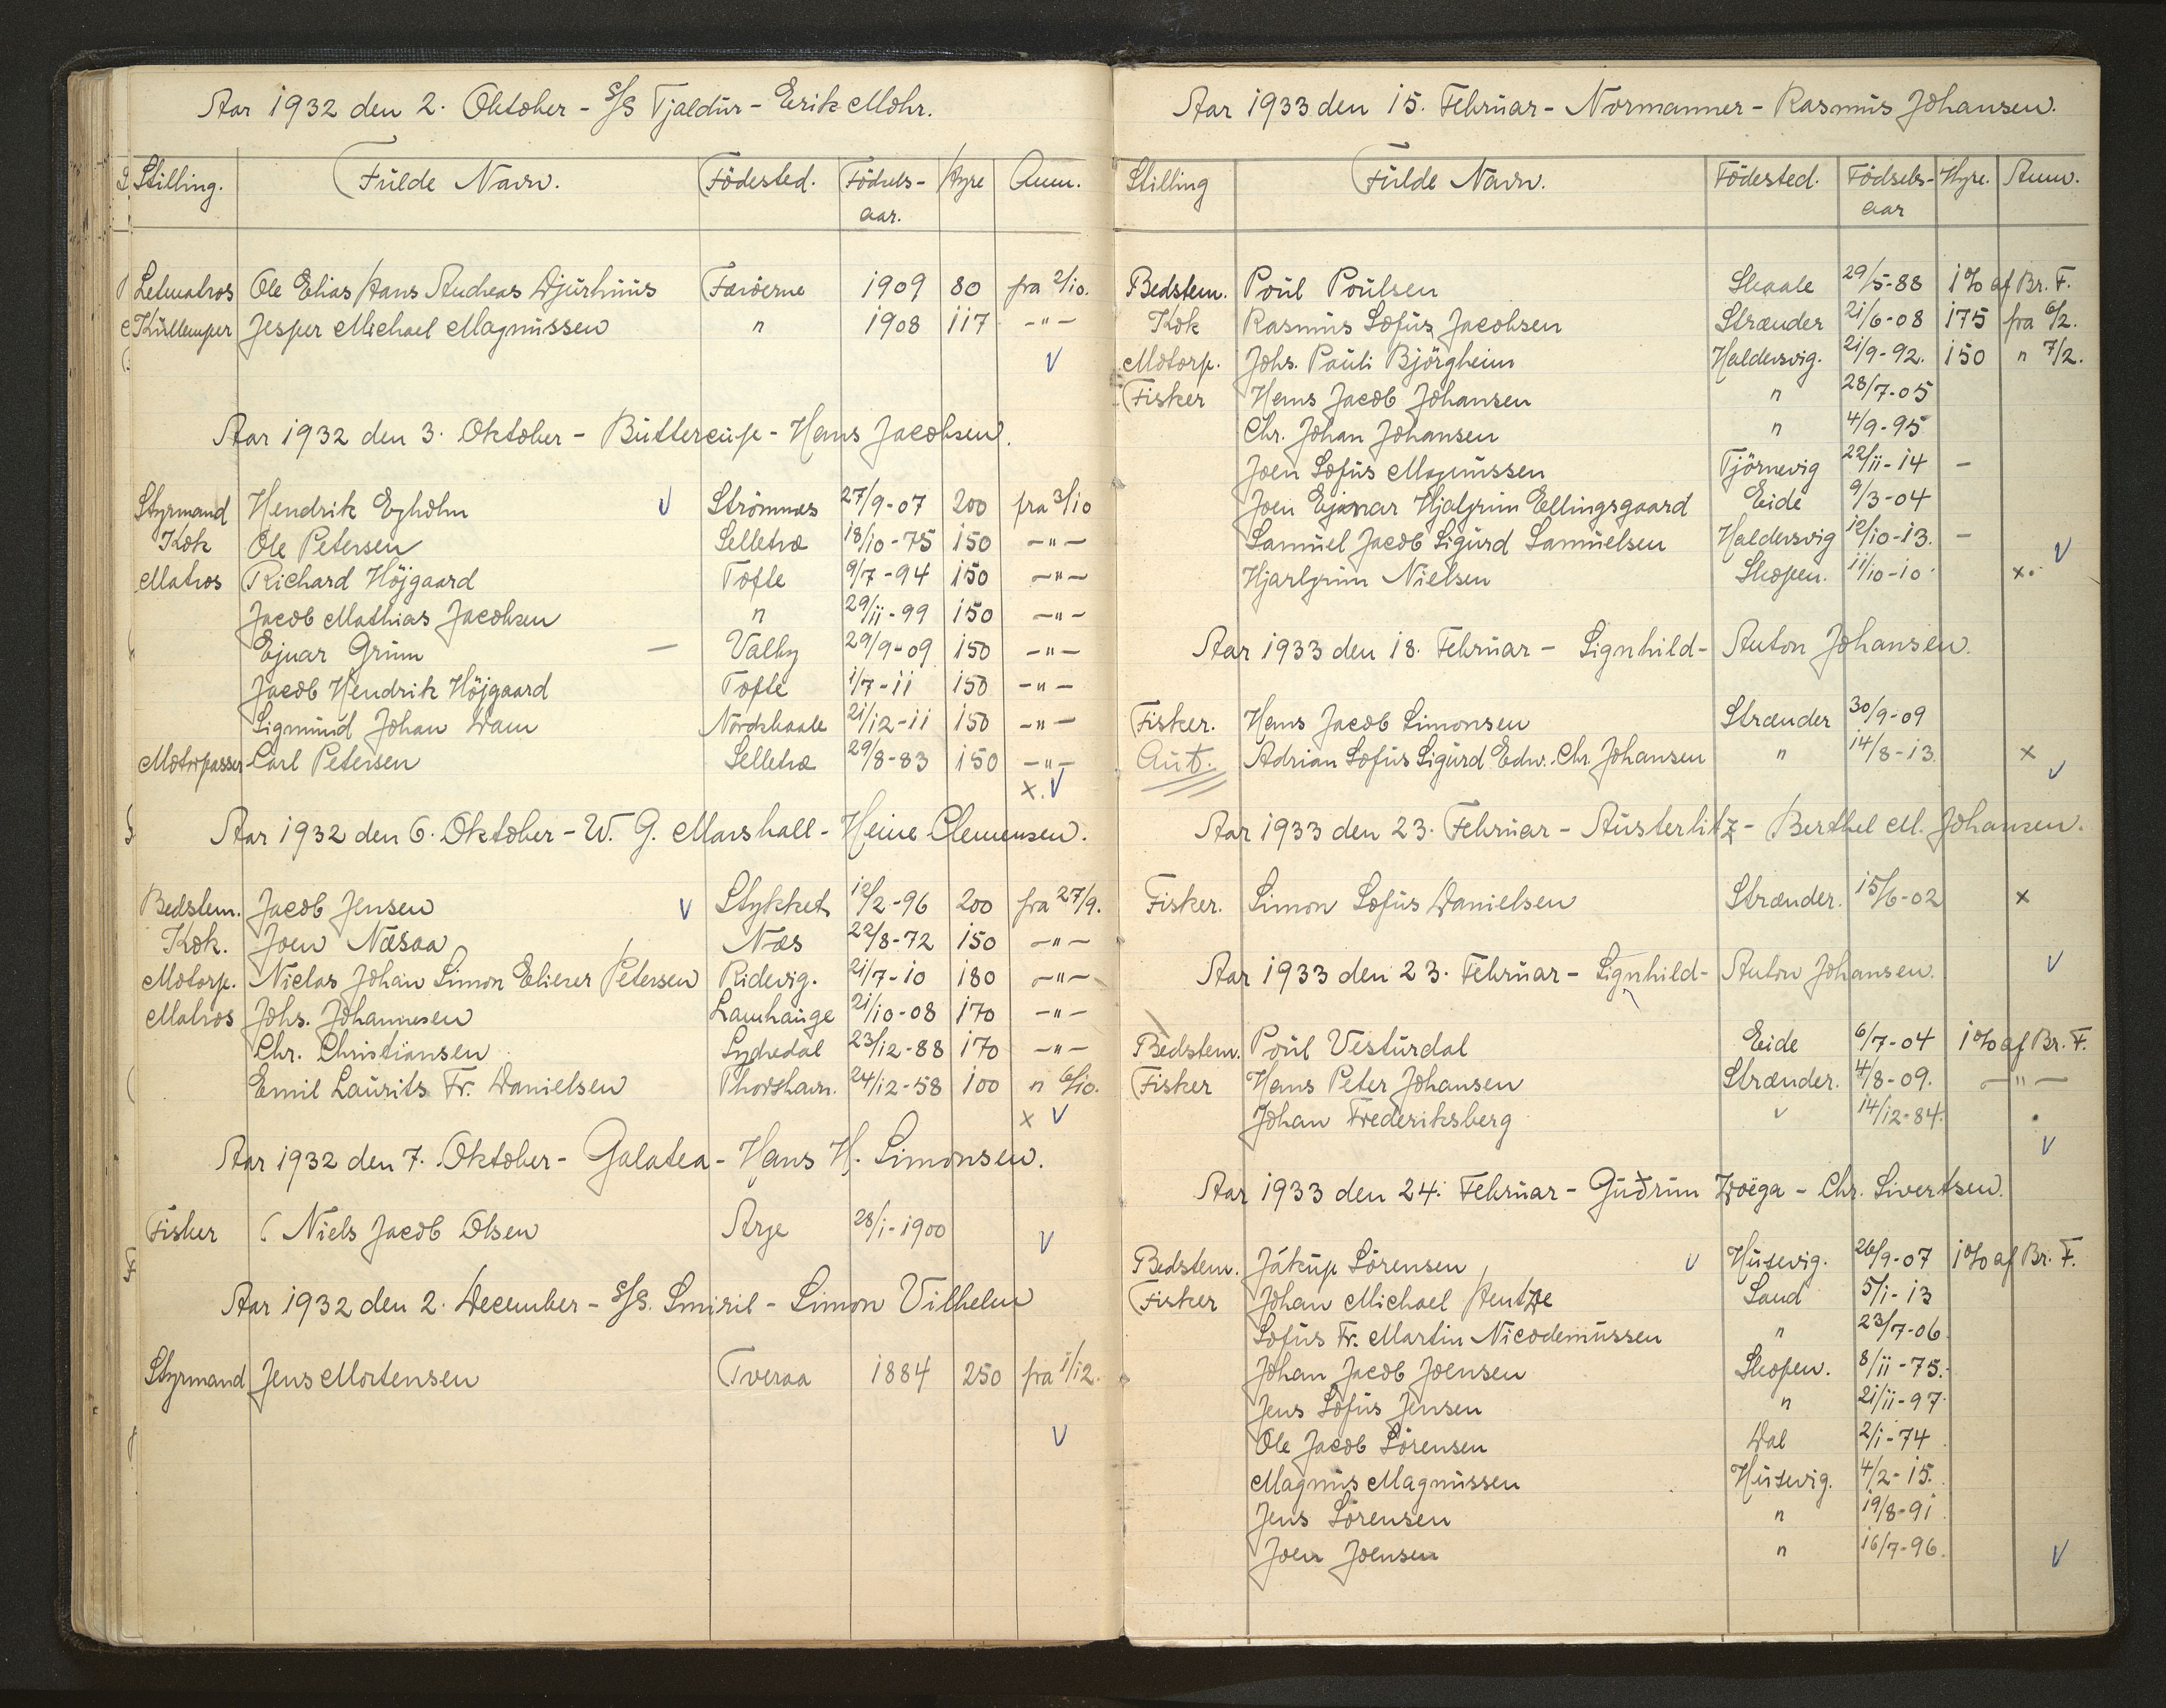 Aar 1932 den 2. Oktober - S/S Tjaldur - Erik Mohr.
Stilling. Fulde Navn. Födested. Födsels-aar. Hyre Anm.
Letmatros Ole Elias Hans Andreas Djurhuus Færöerne 1909 80 fra 2/10.
Kullemper Jesper Michael Magnussen " 1908 117 -"-
V
Aar 1932 den 3. Oktober - Buttercup - Hans Jacobsen.
Styrmand Hendrik Eyholm V Strömnæs 27/9-07 200 fra 3/10
Kok Ole Petersen Selletræ 18/10-75 150 -"-
Matros Richard Höjgaard Tofte 9/7-94 150 -"-
Jacob Mathias Jacobsen " 29/11-99 150 -"-
Ejnar Grum - Valby 29/9-09 150 -"-
Jacob Hendrik Höjgaard Tofte 1/7-11 150 -"-
Sigmund Johan Dam Nordskaale 21/12-11 150 -"-
Motorpasser Carl Petersen Selletræ 29/8-83 150 -"-
x. V
Aar 1932 den 6. Oktober - W. G. Marshall - Heine Clemensen.
Bedstem. Jacob Jensen V Stykket 12/2-96 200 fra 27/9.
Kok. Joen Næsaa Næs 22/8-72 150 -"-
Motorp. Niclas Johan Simon Elieser Petersen Ridevig. 21/7-10 180 -"-
Matros Johs. Johannesen Lamhauge 21/10-08 170 -"-
Chr. Christiansen Syghedal 23/12-88 170 -"-
Emil Laurits Fr. Danielsen Thorshavn. 24/12-58 100 " 6/10.
x V
Aar 1932 den 7. Oktober - Galatea - Hans H. Simonsen.
Fisker ( Niels Jacob Olsen Arge 28/1-1900
V
Aar 1932 den 2. December - S/S. Smiril - Simon Vilhelm
Styrmand Jens Mortensen Tveraa 1884 250 fra 1/12.
V
Aar 1933 den 15. Februar - Normanner - Rasmus Johansen.
Stilling Fulde Navn. Födested. Födsels-aar Hyre. Anm.
Bedstem. Poul Poulsen Skaale 29/5-88 1% af Br. F.
Kok Rasmus Sofus Jacobsen Strænder 21/6-08 175 fra 6/2.
Motorp. Johs. Pauli Björgheim Haldersvig. 21/9-92. 150 " 7/2.
Fisker Hans Jacob Johansen " 28/7-05
Chr. Johan Johansen " 4/9-95
Joen Sofus Magnussen Tjörnevig 22/11-14 -
Joen Ejnar Hjalgrim Ellingsgaard Eide 9/3-04
Samuel Jacob Sigurd Samuelsen Haldersvig 12/10-13. -
V
Hjarlgrim Nielsen Skopen. 11/10-10 x.
Aar 1933 den 18. Februar - Signhild - Anton Johansen.
Fisker. Hans Jacob Simonsen Strænder 30/9-09
Aut. Adrian Sofus Sigurd Edw. Chr. Johansen " 14/8-13. x
V
Aar 1933 den 23. Februar - Austerlitz - Berthel M. Johansen.
Fisker. Simon Sofus Danielsen Strænder. 15/6-02 x
V
Aar 1933 den 23. Februar - Signhild - Anton Johansen.
Bedstem. Poul Vesturdal Eide 6/7-04 1% af Br. F.
Fisker Hans Peter Johansen Strænder. 4/8-09. -"-
Johan Frederiksberg " 14/12-84.
V
Aar 1933 den 24. Februar - Guðrun Zoëga - Chr. Sivertsen.
Bedstem. Jákup Sörensen V Husevig. 26/9-07 1% af Br. F.
Fisker Johan Michael Hentze Sand 5/1-13
Sofus Fr. Martin Nicodemussen " 23/7-06
Johan Jacob Joensen Skopen. 8/11-75.
Jens Sofus Jensen " 21/11-97
Ole Jacob Sörensen Dal 2/1-74
Magnus Magnussen Husevig. 4/2-15.
Jens Sörensen " 19/8-91
Joen Joensen " 16/7-96. V